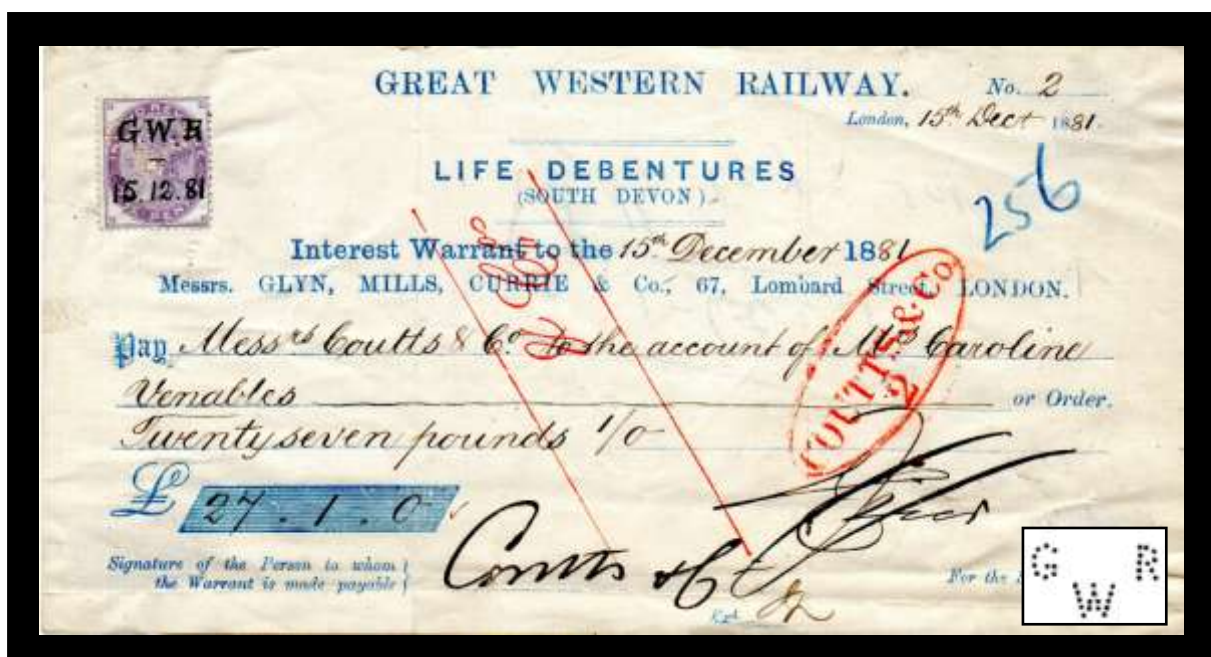 GREAT WESTERN RAILWAY. No. 2
London, 15th Dect 1881.
G.W.R
15.12.81
LIFE DEBENTURES
(SOUTH DEVON).
256
Interest Warrant to the 15th December 1881
Messrs. GLYN, MILLS, CURRIE & Co., 67, Lombard Street, LONDON.
& Co
COUTTS & Co.
2
Pay Messrs Coutts & Co. to the account of Mrs Caroline
Venables or Order.
Twenty seven pounds 1/0
£ 27.1.0
Signature of the Person to whom
the Warrant is made payable
Coutts & Co
For the
G W R